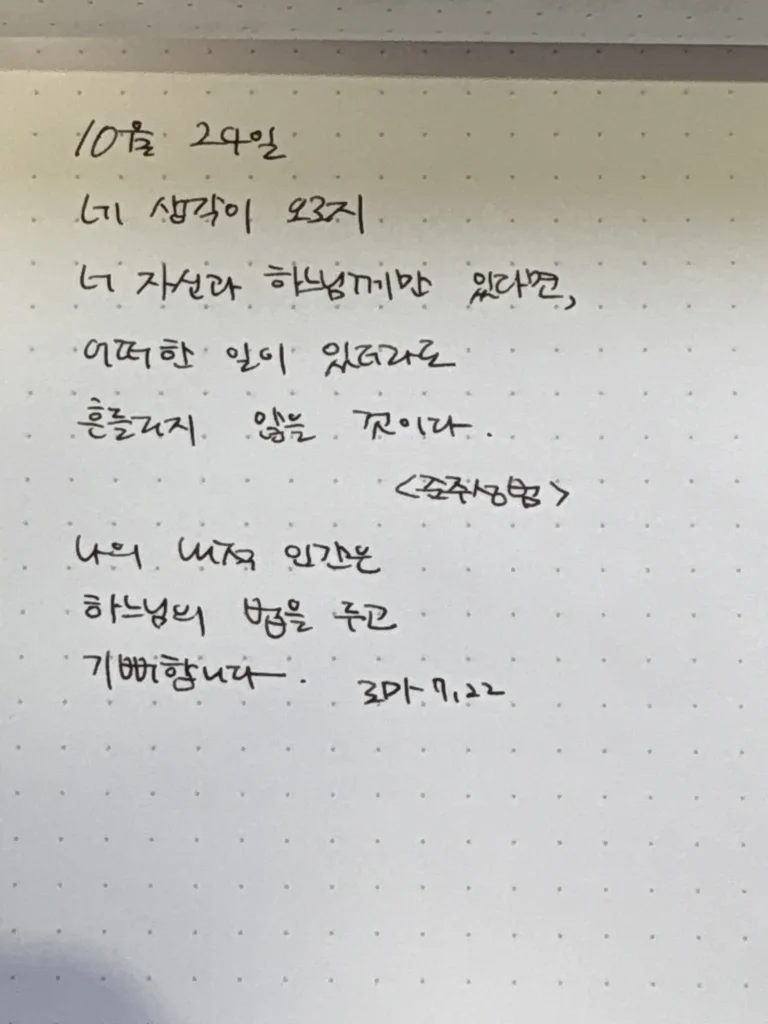 10월 29일
네 생각이 오로지
너 자신과 하느님께만 있다면,
어떠한 일이 있더라도
흔들리지 않을 것이다.
<준주성범>
나의 내적 인간은
하느님의 법을 두고
기뻐합니다.
로마 7,22